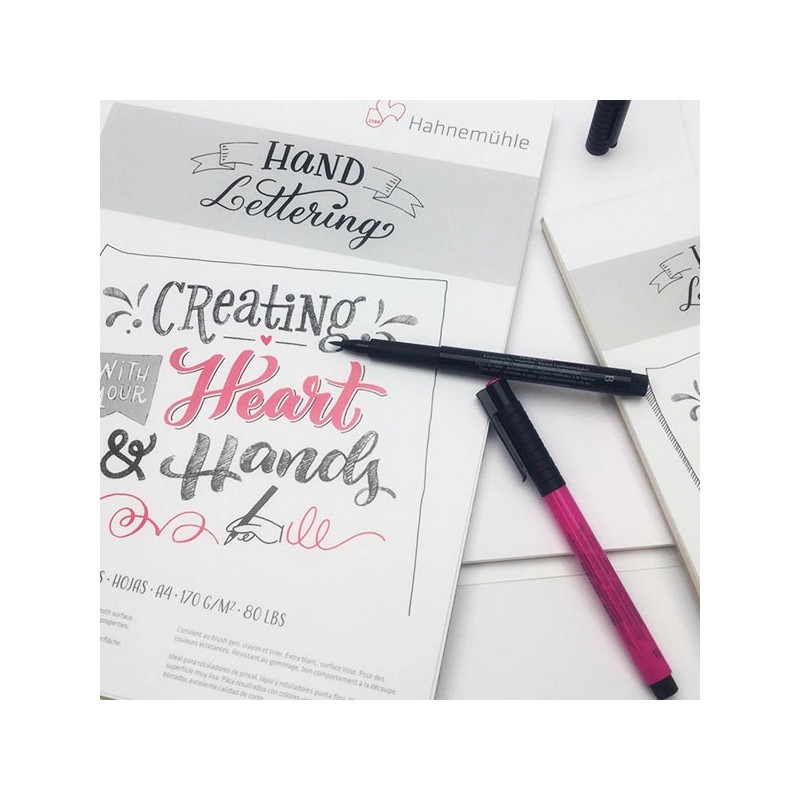 Hahnemühle
HAND
Lettering
CREATING
WITH
YOUR
Heart
& Hands
S · HOJAS · A4 · 170 G/M² · 80 LBS
Convient au Brush pen, crayon et liner. Extra blanc, surface lisse. Pour des
couleurs éclatantes. Résistant au gommage, bon comportement à la découpe
Ideal para rotuladores de pincel, lápiz y rotuladores punta fina.
superficie muy lisa. Para resultados con colores
borrador, excelente calidad de corte
B